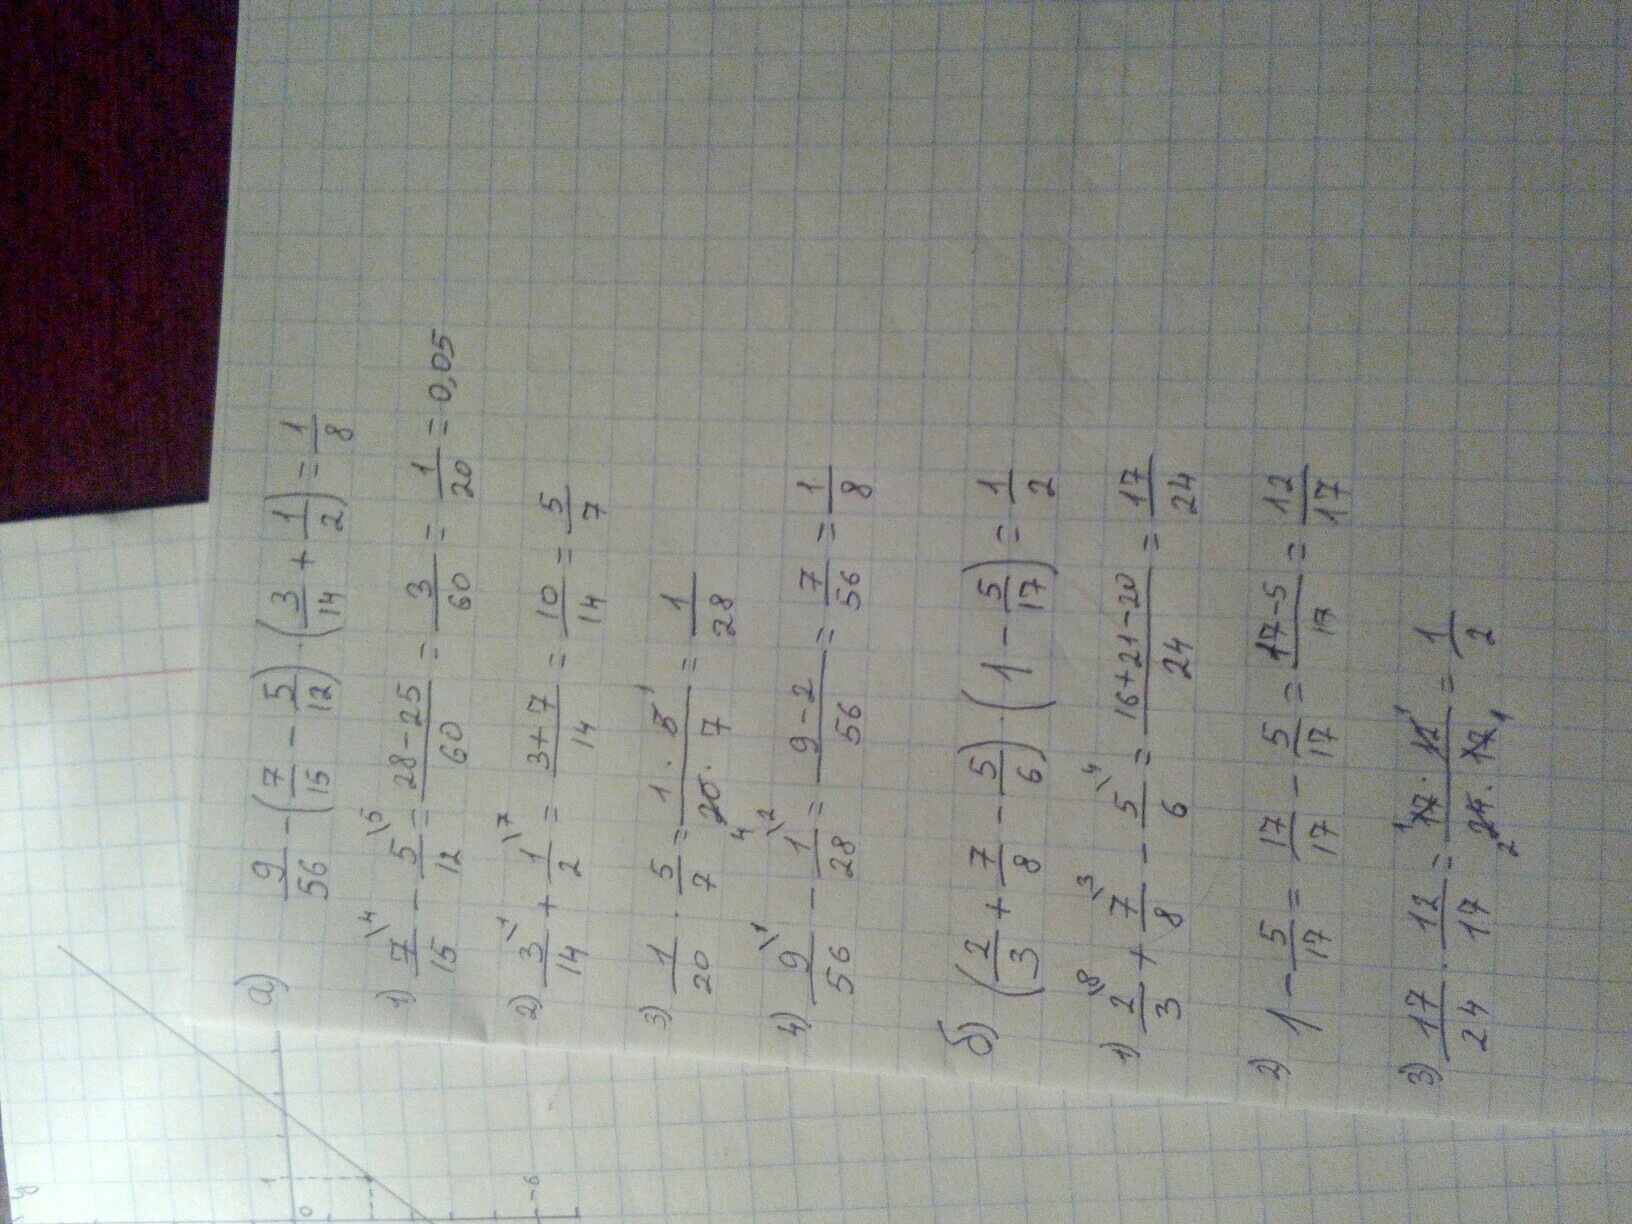 а) 9/56 - (7/15 - 5/12) · (3/14 + 1/2) = 1/8
1) 7\4/15 - 5\5/12 = 28-25/60 = 3/60 = 1/20 = 0,05
2) 3\1/14 + 1\7/2 = 3+7/14 = 10/14 = 5/7
3) 1/20 · 5/7 = 1·5 1/4 20·7 = 1/28
4) 9\1/56 - 1\2/28 = 9-2/56 = 7/56 = 1/8
б) (2/3 + 7/8 - 5/6) · (1 - 5/17) = 1/2
1) 2\8/3 + 7\3/8 - 5\4/6 = 16+21-20/24 = 17/24
2) 1 - 5/17 = 17/17 - 5/17 = 17-5/17 = 12/17
3) 17/24 · 12/17 = 1 17·12 1/2 24·17 1 = 1/2
y
1
0
-6